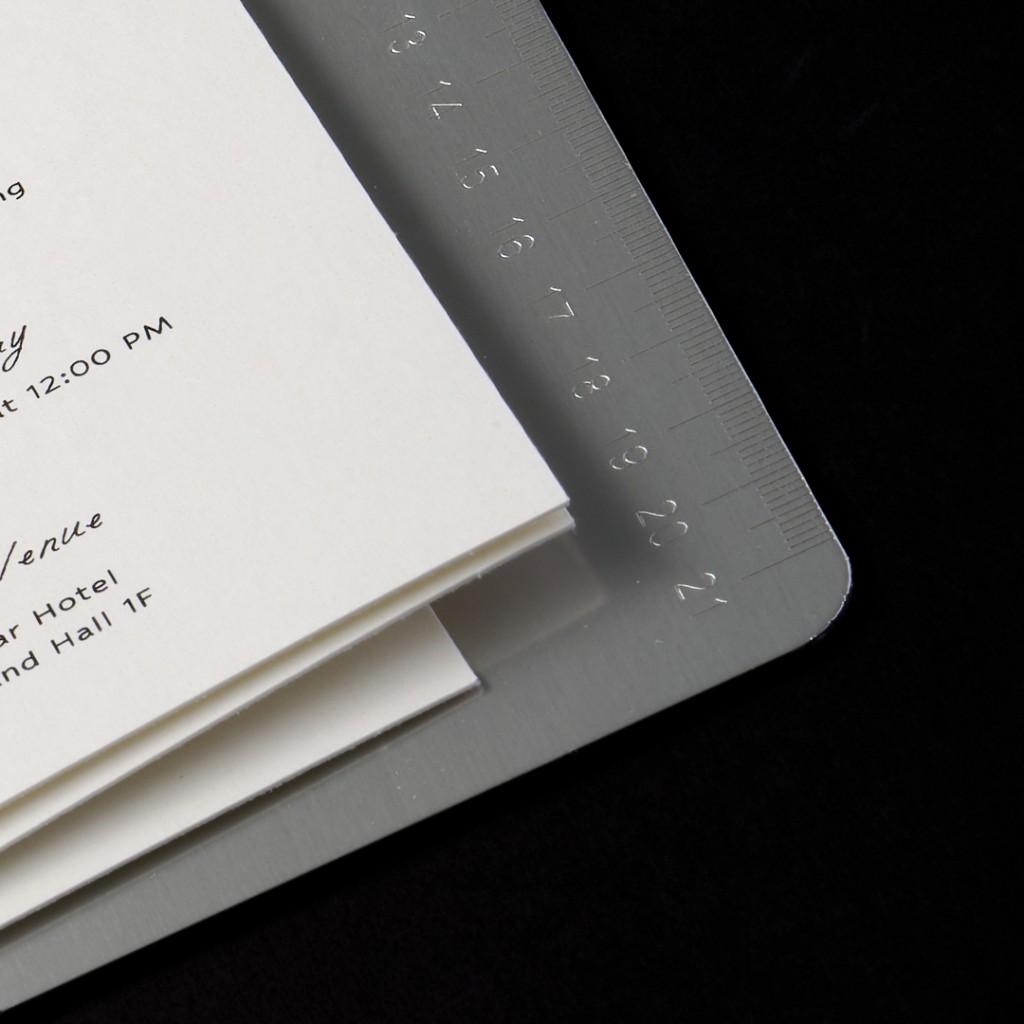 ng
ay
t 12:00 PM
Venue
ar Hotel
nd Hall 1F
13
14
15
16
17
18
19
20
21